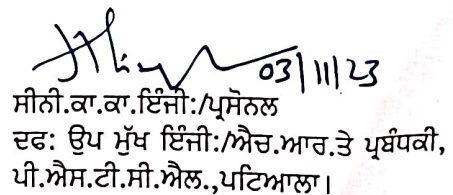 03/11/23
ਸੀਨੀ.ਕਾ.ਕਾ.ਇੰਜੀ:/ਪ੍ਰਸੋਨਲ
ਦਫ: ਉਪ ਮੁੱਖ ਇੰਜੀ:/ਐਚ.ਆਰ.ਤੇ ਪ੍ਰਬੰਧਕੀ,
ਪੀ.ਐਸ.ਟੀ.ਸੀ.ਐਲ.,ਪਟਿਆਲਾ।